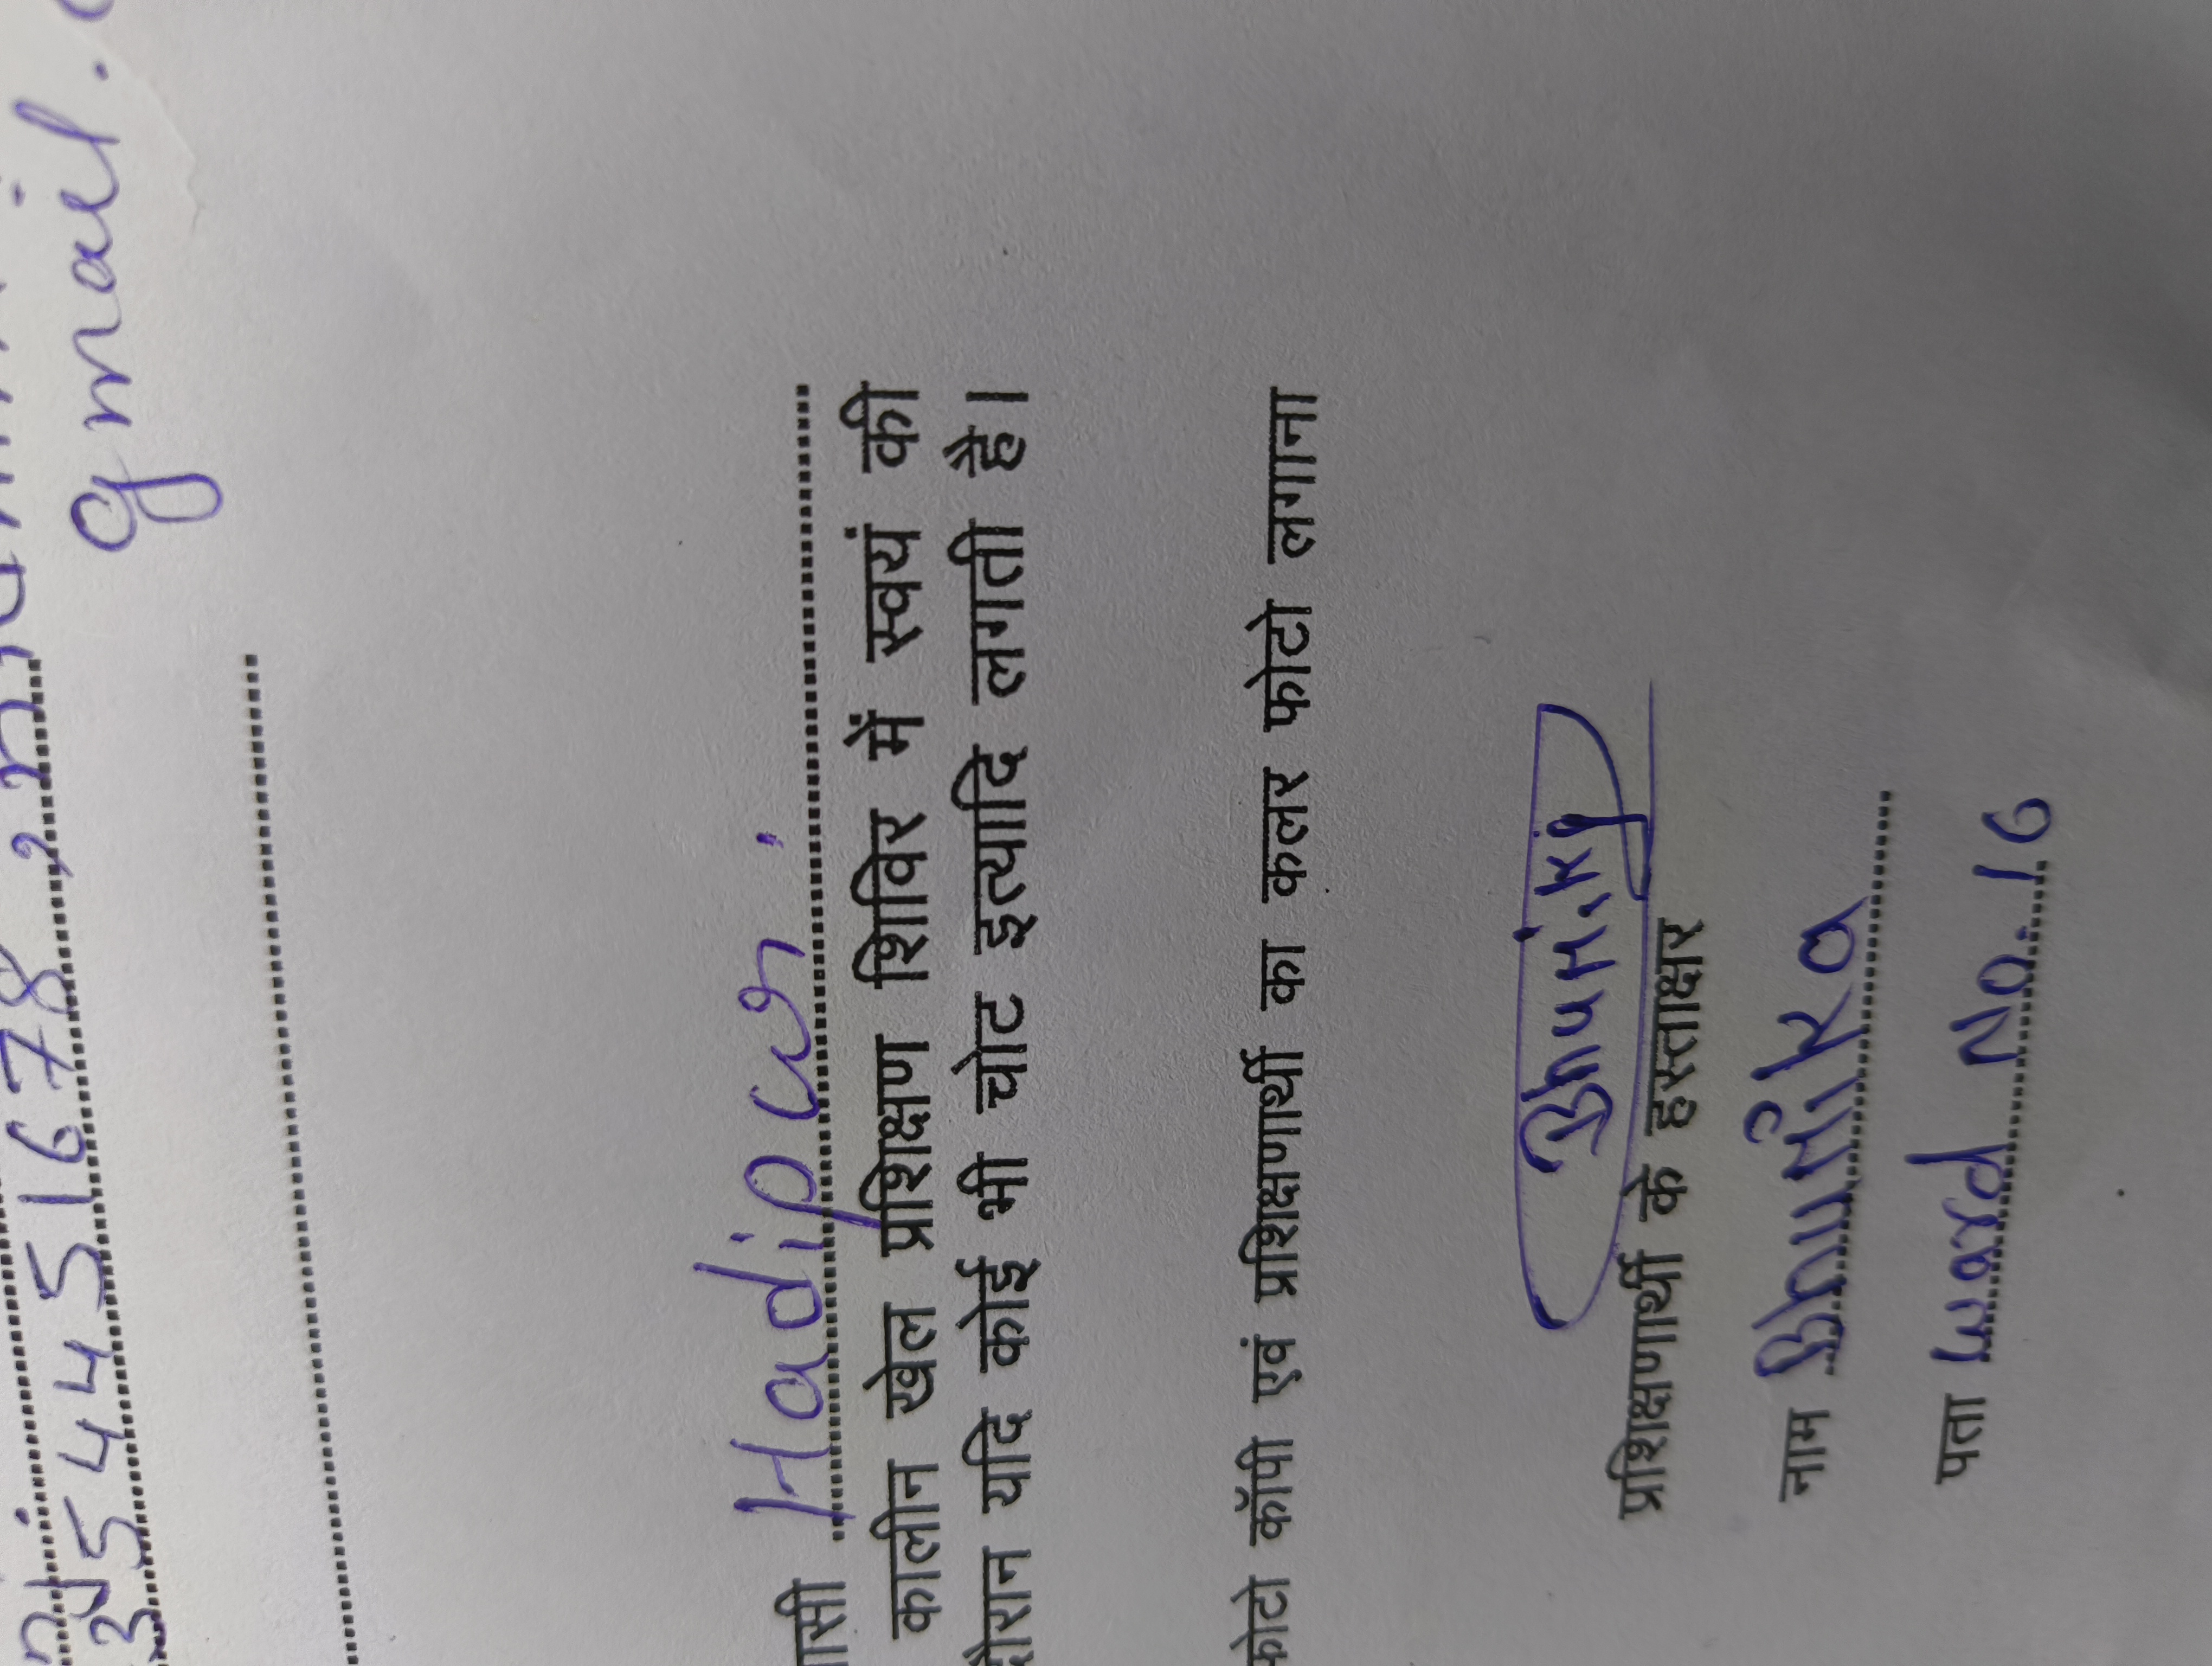 35445 1678,
gmail.
ासी Hadipur.
कालीन खेल प्रशिक्षण शिविर में स्वयं की
दौरान यदि कोई भी चोट इत्यादि लगती है।
फोटो कॉपी एवं प्रशिक्षणार्थी का कलर फोटो लगाना
प्रशिक्षणार्थी के हस्ताक्षर
नाम Bhumika
पता Ward No. 16